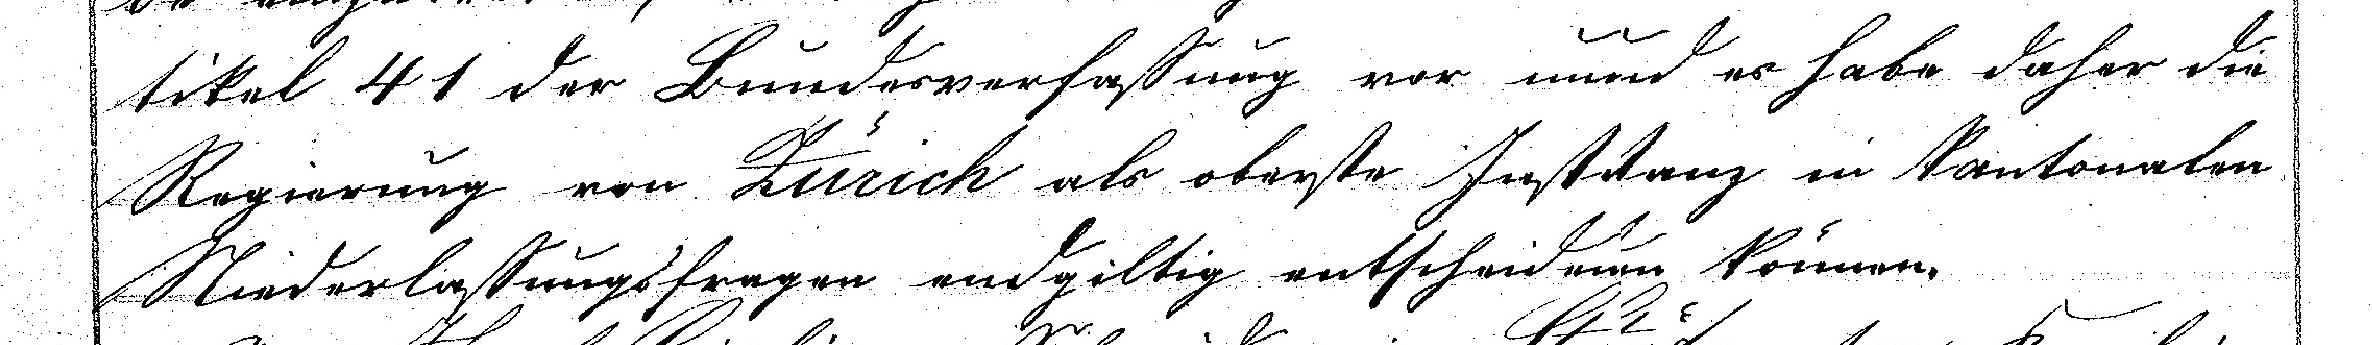 tikel 41 der Bundesverfassung vor und es habe daher die
Regierung von Zürich als oberste Instanz in kantonalen
Niederlassungsfragen endgiltig entscheiden können.